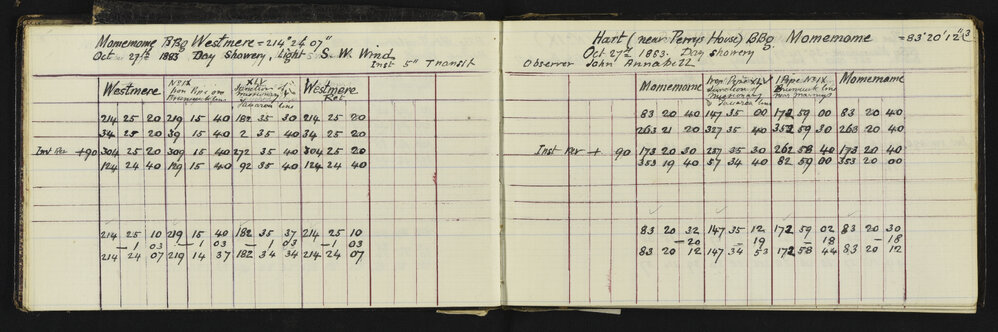 Momemome BBg Westmere = 214° 24' 07"
Oct 27th 1883 Day Showery, Light S. W. Wind
Inst 5" Transit
Westmere No IX Iron Pipe on Brunswick line XLV Junction of Missionary & Line Westmere Ret
214 25 20 219 15 40 182 35 30 214 25 20
34 25 20 39 15 40 2 35 40 34 25 20
Inst Per +90 304 25 20 309 15 40 272 35 40 304 25 20
124 24 40 129 15 40 92 35 40 124 24 40
214 25 10 219 15 40 182 35 37 214 25 10
— 1 03 — 1 03 — 1 03 — 1 03
214 24 07 219 14 37 182 34 34 214 24 07
Hart (near Perrys House) BBg. Momemome = 83° 20' 12"
Oct 27th 1883. Day Showery
Observer John Annabell.
Momemome Iron Pipe XLV Junction of Missionary & line I Pipe No IX Brunswick line Momemome
83 20 40 147 35 00 172 59 00 83 20 40
263 21 20 327 35 40 352 59 30 263 20 40
Inst Per + 90 173 20 30 237 35 30 262 58 40 173 20 40
353 19 40 57 34 40 82 59 00 353 20 00
83 20 32 147 35 12 172 59 02 83 20 30
— 20 — 19 — 18 — 18
83 20 12 147 34 53 172 58 44 83 20 12